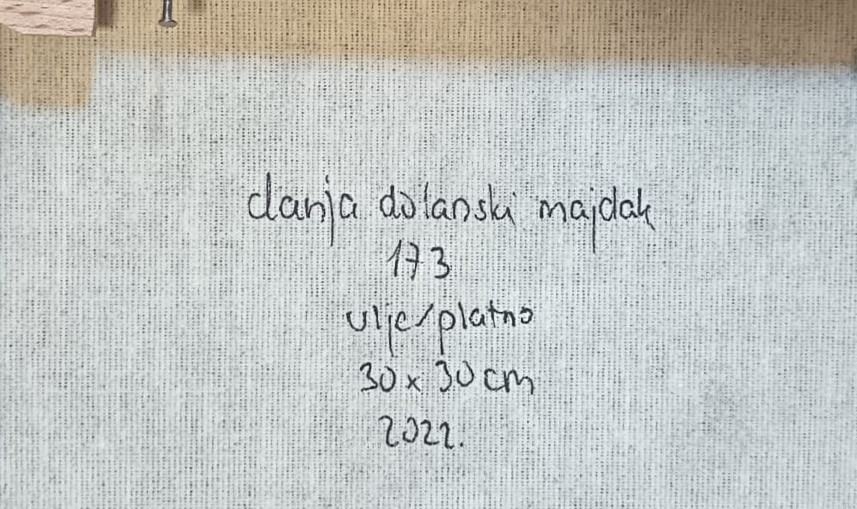 danja dolanski majdak
173
ulje/platno
30 x 30 cm
2022.